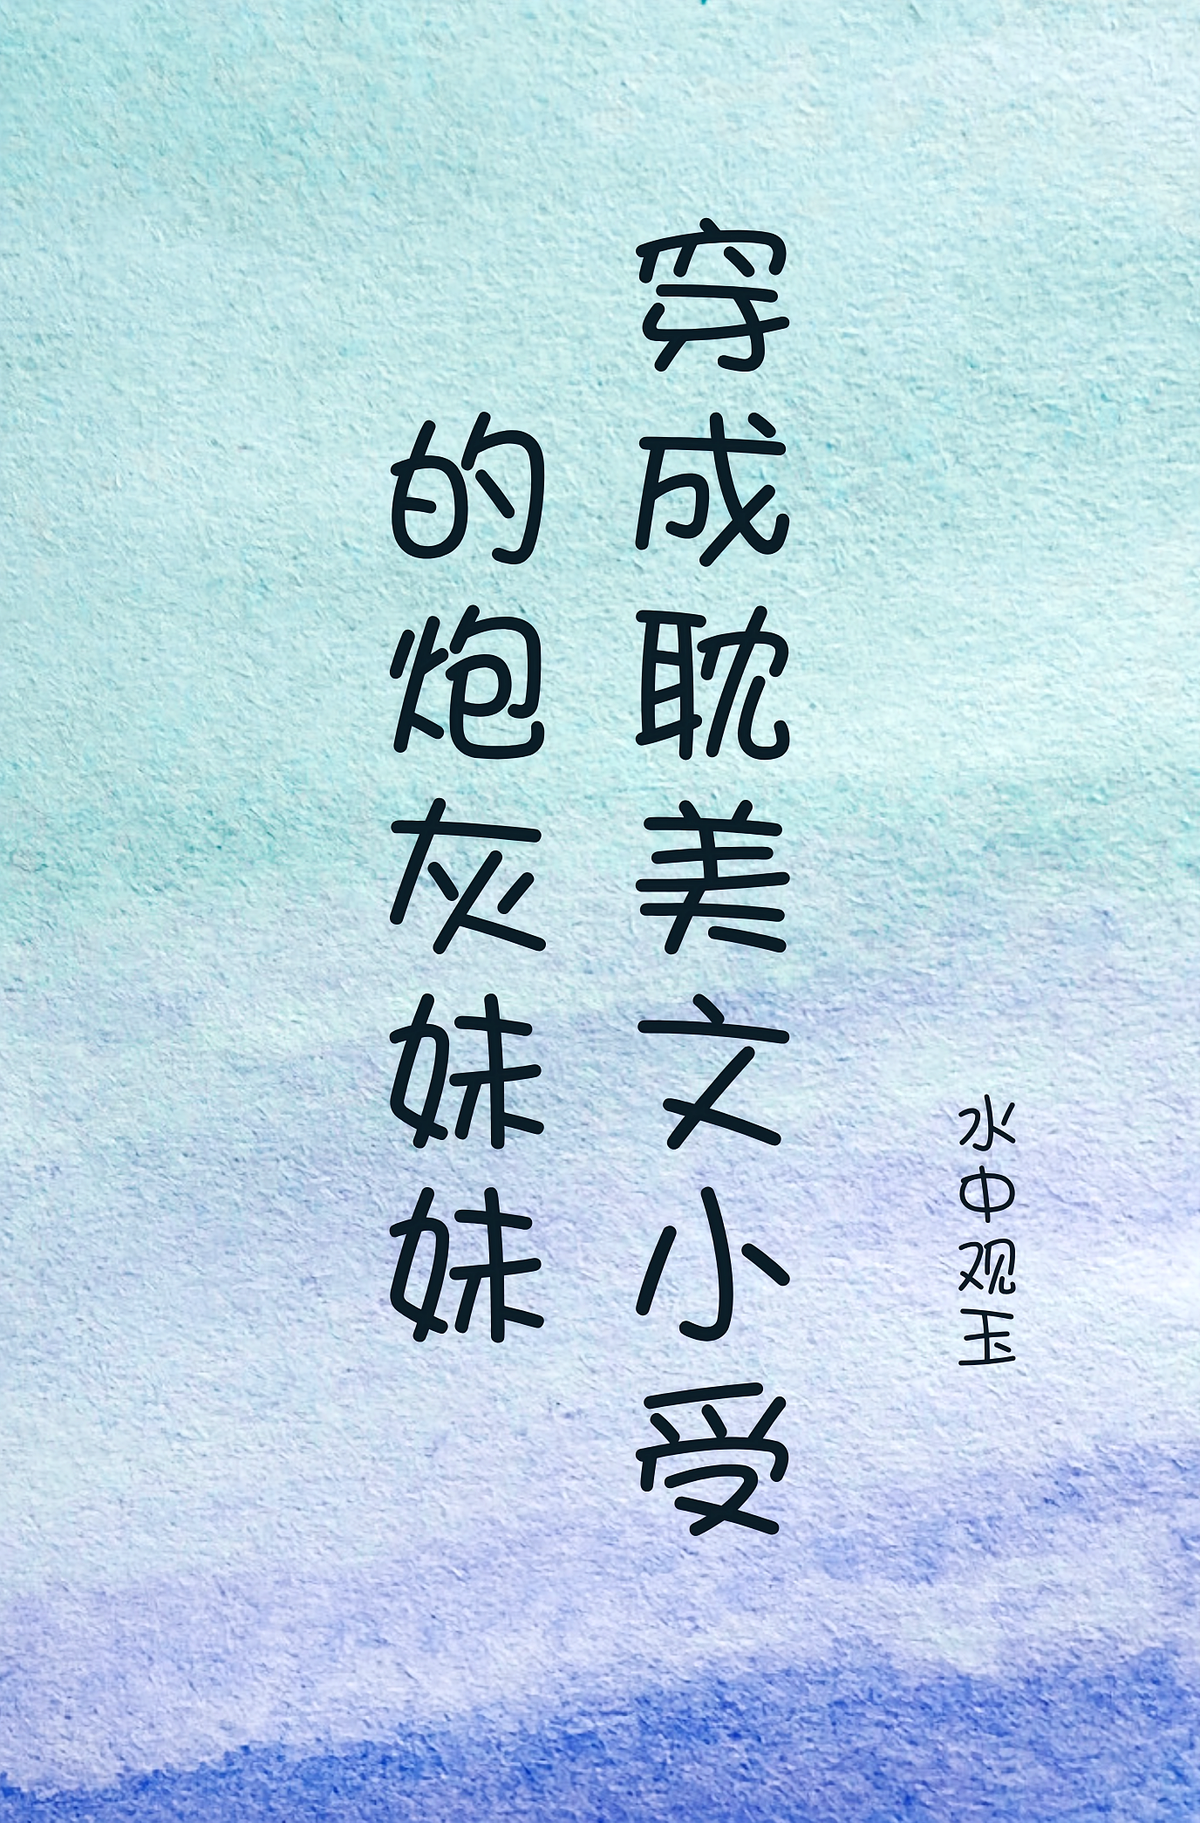 穿成耽美文小受
的炮灰妹妹
水中观玉